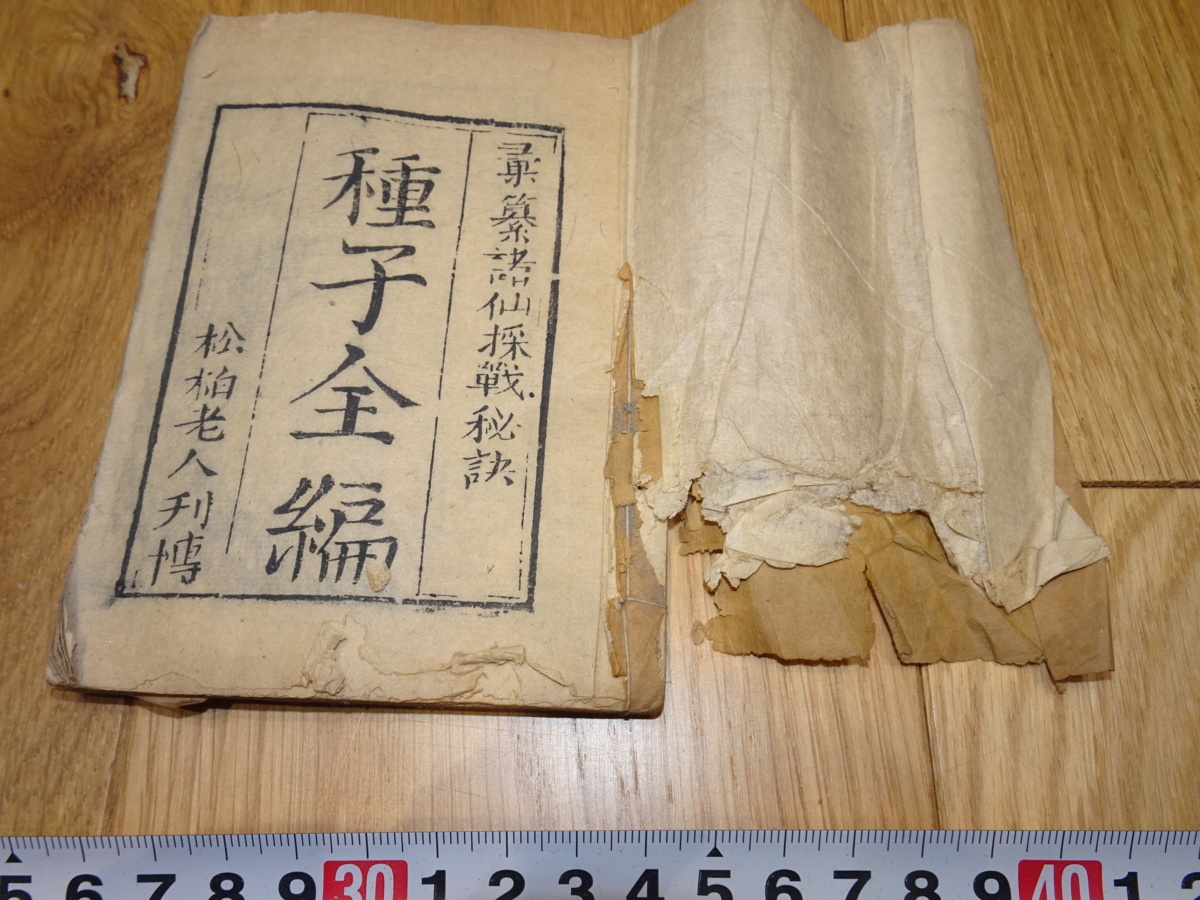 彙纂諸仙採戰秘訣
種子全編
松柏老人刋博
5 6 7 8 9 30 1 2 3 4 5 6 7 8 9 40 1 2